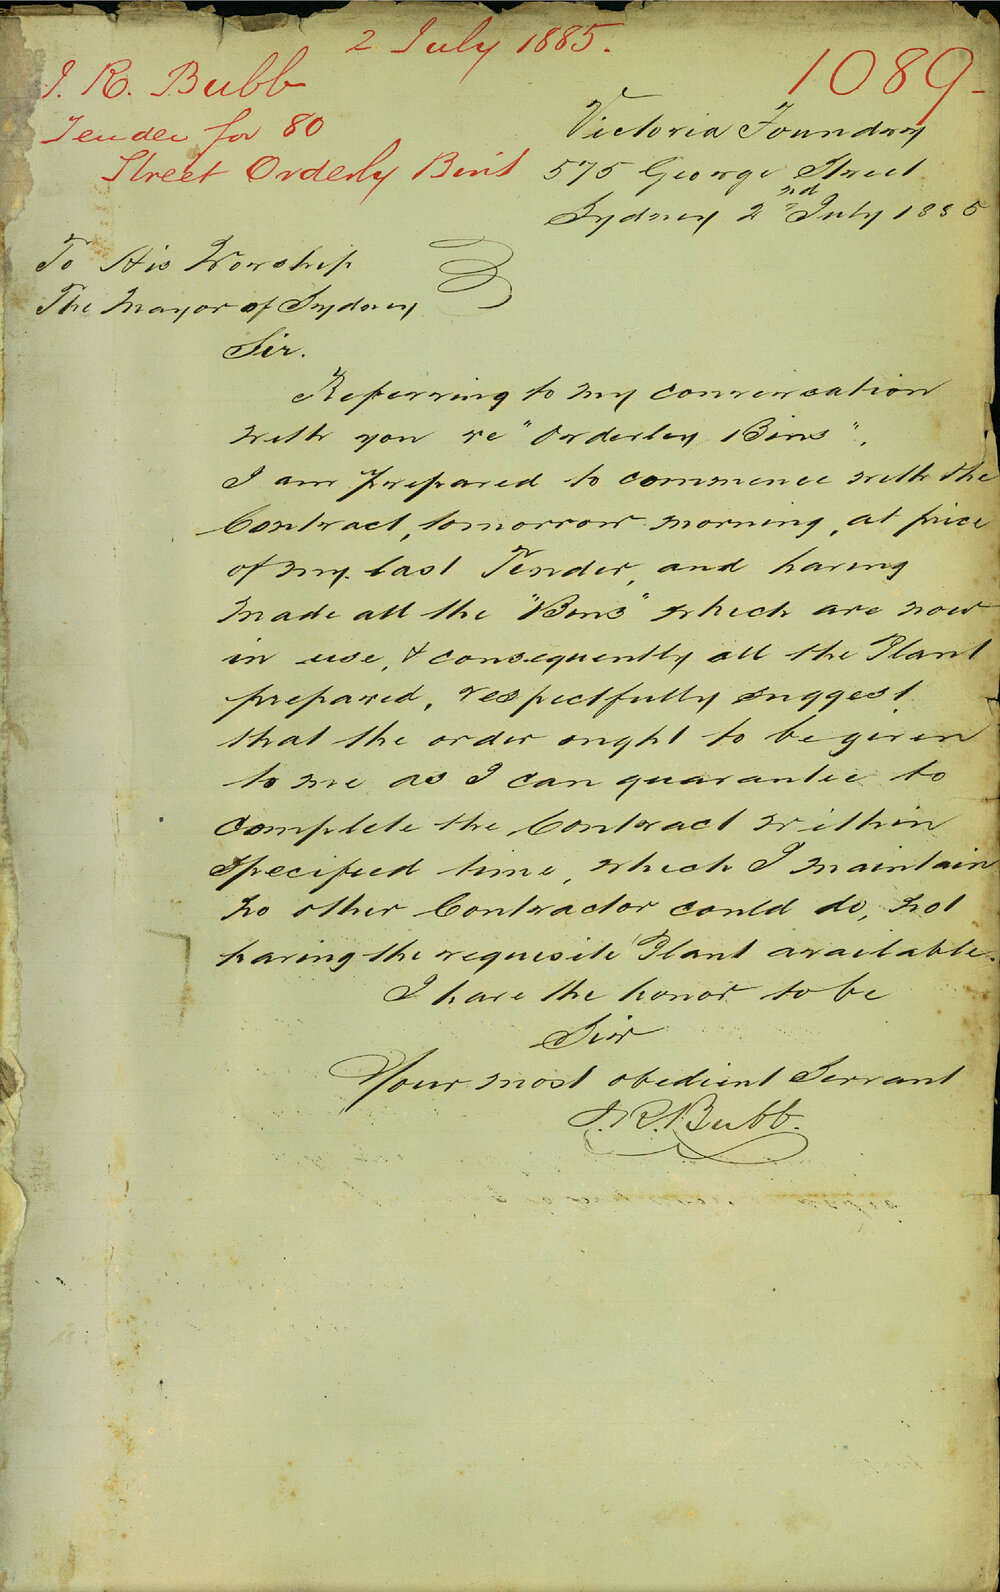 2 July 1885.
1089-
J. R. Bubb
Tender for 80
Street Orderly Bins
Victoria Foundry
575 George Street
Sydney 2nd July 1885
To His Worship
The Mayor of Sydney
Sir.
Referring to my conversation
with you re "Orderley Bins",
I am prepared to commence with the
Contract, tomorrow morning, at price
of my last Tender, and having
made all the "Bins" which are now
in use, & consequently all the Plant
prepared, respectfully suggest
that the order ought to be given
to me as I can guarantee to
complete the Contract within
specified time, which I maintain
no other Contractor could do, not
having the requisite Plant available.
I have the honor to be
Sir
Your most obedient Servant
J. R. Bubb.